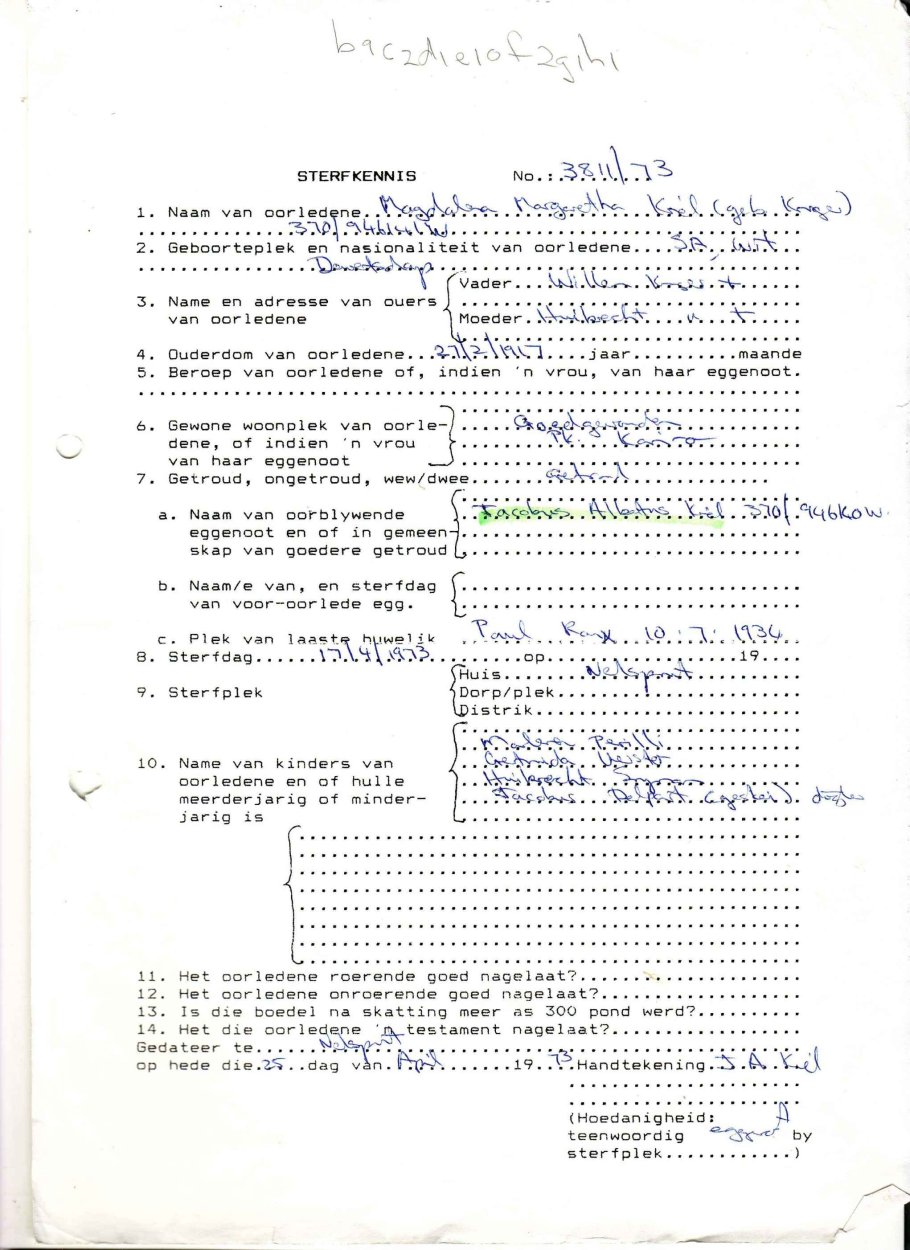 b9c2d1e10f2g1h1
STERFKENNIS No.: 3811/73
1. Naam van oorledene Magdalena Margaretha Kriël (geb. Kruger)
370/946
2. Geboorteplek en nasionaliteit van oorledene... S.A. wit
3. Name en adresse van ouers van oorledene
Vader... Willem Kruger +
Moeder... Huibrecht " +
4. Ouderdom van oorledene... 27/2/1917....jaar.........maande
5. Beroep van oorledene of, indien 'n vrou, van haar eggenoot.
6. Gewone woonplek van oorle-
dene, of indien 'n vrou
van haar eggenoot
Goedgevonden
Pk. Karino
7. Getroud, ongetroud, wew/dwee... Getroud
a. Naam van oorblywende
eggenoot en of in gemeen-
skap van goedere getroud
Jacobus Albertus Kriël 370/946KOW.
b. Naam/e van, en sterfdag
van voor-oorlede egg.
c. Plek van laaste huwelik Paul Roux 10.7.1934
8. Sterfdag...... 17/4/1973........op....................19....
9. Sterfplek
Huis... Nelspruit
Dorp/plek
Distrik
10. Name van kinders van
oorledene en of hulle
meerderjarig of minder-
jarig is
Huibrecht
Jacobus Delport (geskei) dogter
11. Het oorledene roerende goed nagelaat?
12. Het oorledene onroerende goed nagelaat?
13. Is die boedel na skatting meer as 300 pond werd?
14. Het die oorledene 'n testament nagelaat?
Gedateer te...... Nelspruit
op hede die. 25 ..dag van. April......19 73 Handtekening. J.A. Kriël
(Hoedanigheid:
teenwoordig eggenoot by
sterfplek............)